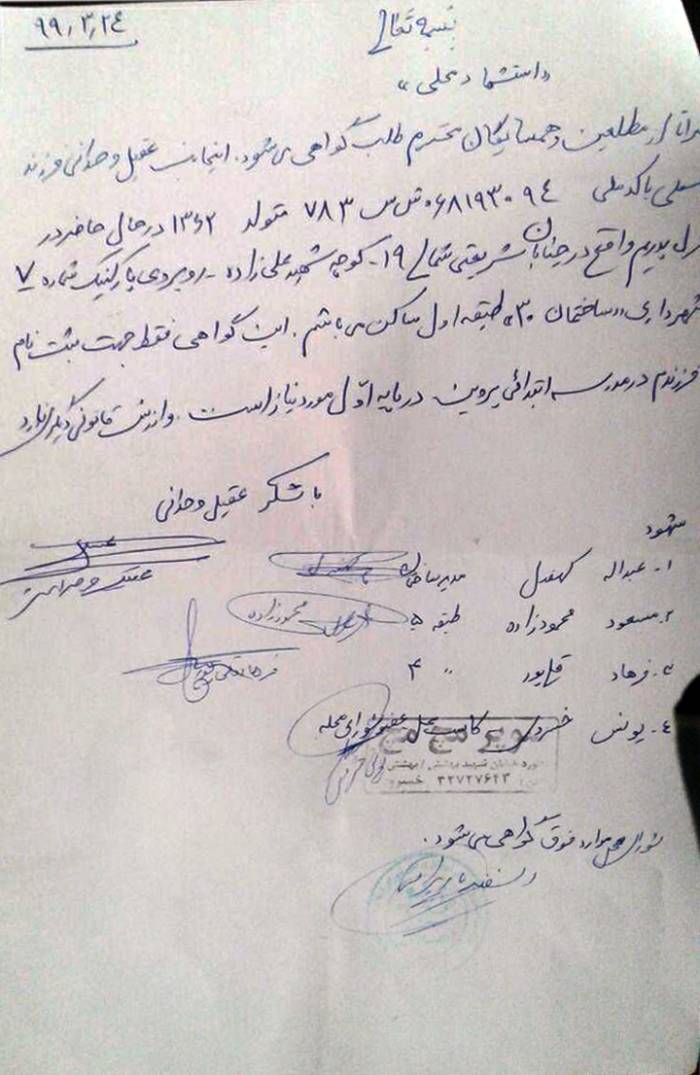 ۹۹/۳/۲۴
بسمه تعالی
«استشهاد محلی»
از مطلعین و همسایگان محترم طلب گواهی می‌شود. اینجانب عقیل وحدانی فرزند
باکدملی ۰۶۸۱۹۳۰۹۴ ش‌ش ۷۸۳ متولد ۱۳۶۲ در حال حاضر در
واقع در خیابان شریعتی شمالی ۱۹ - کوچه شهید علی‌زاده - روبروی پارکینگ شماره ۷
شهرداری، ساختمان ۳۰، طبقه اول ساکن می‌باشم. این گواهی فقط جهت ثبت نام
فرزندم در مدرسه ابتدائی پروین در پایه اوّل مورد نیاز است. و ارزش قانونی دیگری ندارد
با تشکر عقیل وحدانی
شهود
۱- عبداله کهنسل مدیر ساختمان
۲- مسعود محمودزاده طبقه ۵ محمودزاده
۳- فرهاد قلی‌پور " ۴
۴- یونس خسروی کاسب محل عضو شورای محله
سوپر
شهید بهشتی / بهشتی
۳۲۷۲۷۶۲۳ خسروی
موارد فوق گواهی می‌شود.